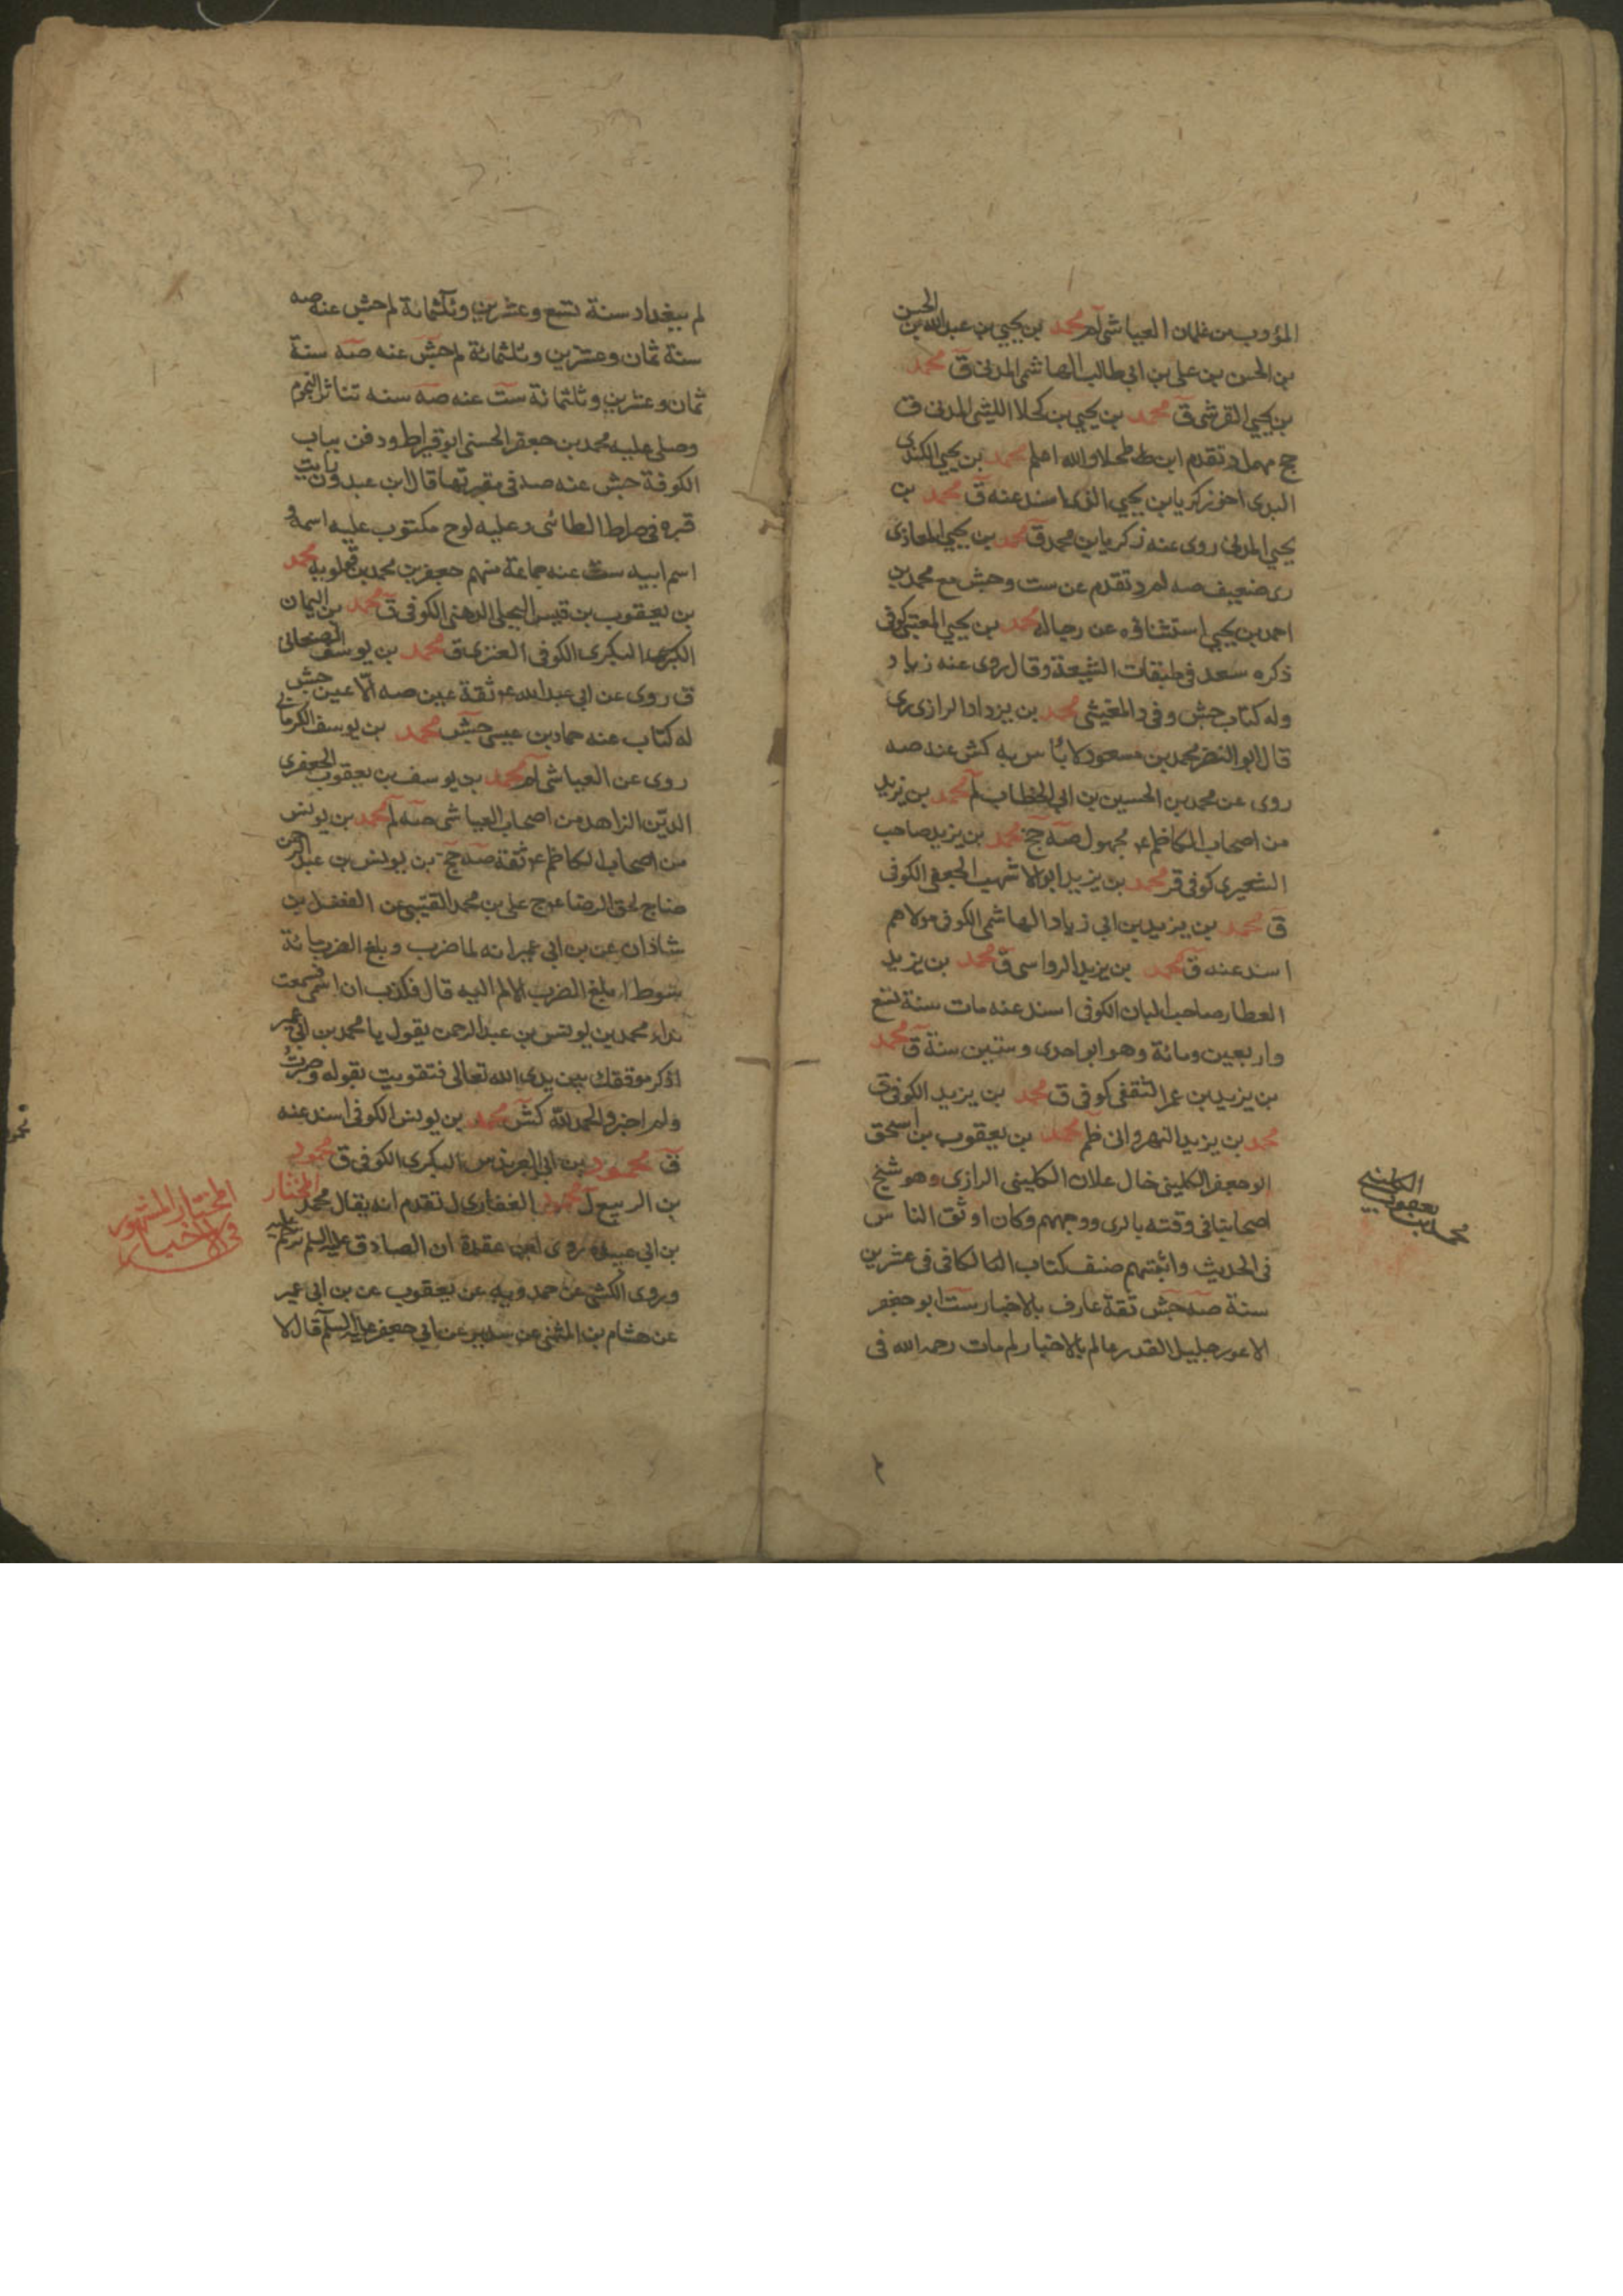 المؤدب من غلمان العياشى لم محمد بن يحيى بن عبد الله بن الحسن
بن الحسن بن على بن ابى طالب الهاشمى المدنى ق محمد
بن يحيى القرشى ق محمد بن يحيى بن كحلا الليثى المدنى ق
جخ مهمل وتقدم ابن طحلا والله اعلم محمد بن يحيى الكندى
البدى اخو زكريا بن يحيى الذى اسند عنه ق محمد بن
يحيى المدنى روى عنه زكريا بن محمد ق محمد بن يحيى المعاذى
رى ضعيف صه لم د تقدم عن ست وجش مع محمد بن
احمد بن يحيى استثناؤه عن رجاله محمد بن يحيى المعتبى كوفى
ذكره سعد فى طبقات الشيعة وقال روى عنه زياد
وله كتاب جش وفى د المغيثى محمد بن يزداد الرازى رى
قال ابو النضر محمد بن مسعود لا بأس به كش عنه صه
روى عن محمد بن الحسين بن ابى الخطاب لم محمد بن يزيد
من اصحاب الكاظم ع مجهول صه جخ محمد بن يزيد صاحب
الشعيرى كوفى قر محمد بن يزيد ابو الاشهب الجعفى الكوفى
ق محمد بن يزيد بن ابى زياد الهاشمى الكوفى مولاهم
اسند عنه ق محمد بن يزيد الرواسى ق محمد بن يزيد
العطار صاحب البان الكوفى اسند عنه مات سنة تسع
واربعين ومائة وهو ابو احدى وستين سنة ق محمد
بن يزيد بن عمر الثقفى كوفى ق محمد بن يزيد الكوفى ق
محمد بن يزيد النهروانى ظم محمد بن يعقوب بن اسحق
ابو جعفر الكلينى خال علان الكلينى الرازى وهو شيخ
اصحابنا فى وقته بالرى ووجههم وكان اوثق الناس
فى الحديث واثبتهم صنف كتاب الكافى فى عشرين
سنة صه جش ثقة عارف بالاخبار ست ابو جعفر
الاعور جليل القدر عالم بالاخبار لم مات رحمه الله فى
الكلينى
محمد بن يعقوب
لم ببغداد سنة تسع وعشرين وثلثمائة لم جش عنه صه
سنة ثمان وعشرين وثلثمائة لم جش عنه صه سنة
ثمان وعشرين وثلثمائة ست عنه صه سنه تناثر النجوم
وصلى عليه محمد بن جعفر الحسنى ابو قيراط ودفن بباب
الكوفة جش عنه صه فى مقبرتها قال ابن عبدون رايت
قبره فى صراط الطائى وعليه لوح مكتوب عليه اسمه و
اسم ابيه ست عنه جماعة منهم جعفر بن محمد بن قولويه محمد
بن يعقوب بن قيس البجلى الدهنى الكوفى ق محمد بن اليمان
البكرى الكوفى العنزى ق محمد بن يوسف الصنعانى
ق روى عن ابى عبد الله ع ثقة عين صه الا عين جش
له كتاب عنه حماد بن عيسى جش محمد بن يوسف الكرمانى
روى عن العياشى لم محمد بن يوسف بن يعقوب الجعفرى
الدين الزاهد من اصحاب العياشى صه لم محمد بن يونس
من اصحاب الكاظم ع ثقة صه جخ بن يونس بن عبد الرحمن
ضا ج لحق الرضا ع ج على بن محمد القتيبى عن الفضل بن
شاذان عن بن ابى عمير انه لما ضرب وبلغ الضرب مائة
سوط ابلغ الضرب الالم اليه قال فكدت ان اسمى فسمعت
نداء محمد بن يونس بن عبد الرحمن يقول يا محمد بن ابى عمير
اذكر موقفك بين يدى الله تعالى فتقويت بقوله وصبرت
ولم اخبر والحمد لله كش محمد بن يونس الكوفى اسند عنه
ق محمود بن ابى العريف البكرى الكوفى ق محمود
بن الربيع ل محمود الغفارى ل تقدم انه يقال محمد المختار
بن ابى عبيده روى عقدة ان الصادق عليه السلم ترحم عليه
وروى الكشى عن حمدويه عن يعقوب عن بن ابى عمير
عن هشام بن المثنى عن سدير عن ابى جعفر عليه السلم قال لا
المختار المشهور
فى الاخبار